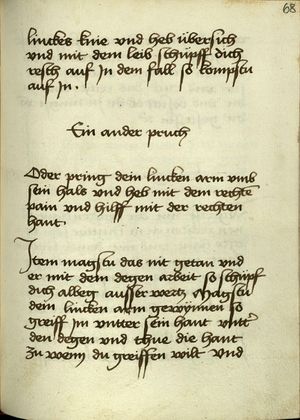 68
linckes knie vnd heb übersich
vnd mit dem leib schüpff dich
resch auf in dem fall so kompstu
auf in .
Ein ander pruch
Oder pring dein lincken arm vmb
sein hals vnd heb mit dem rechten
pain vnd hilff mit der rechten
hant .
Item magstu das nit getan vnd
er mit dem degen arbeit so schüpf
dich alber ausser wertz Magstu
dein lincken arm gewynnen so
greiff im vntter sein hant vntter
den degen vnd thue die hant
zu wem du greiffen wilt vnd